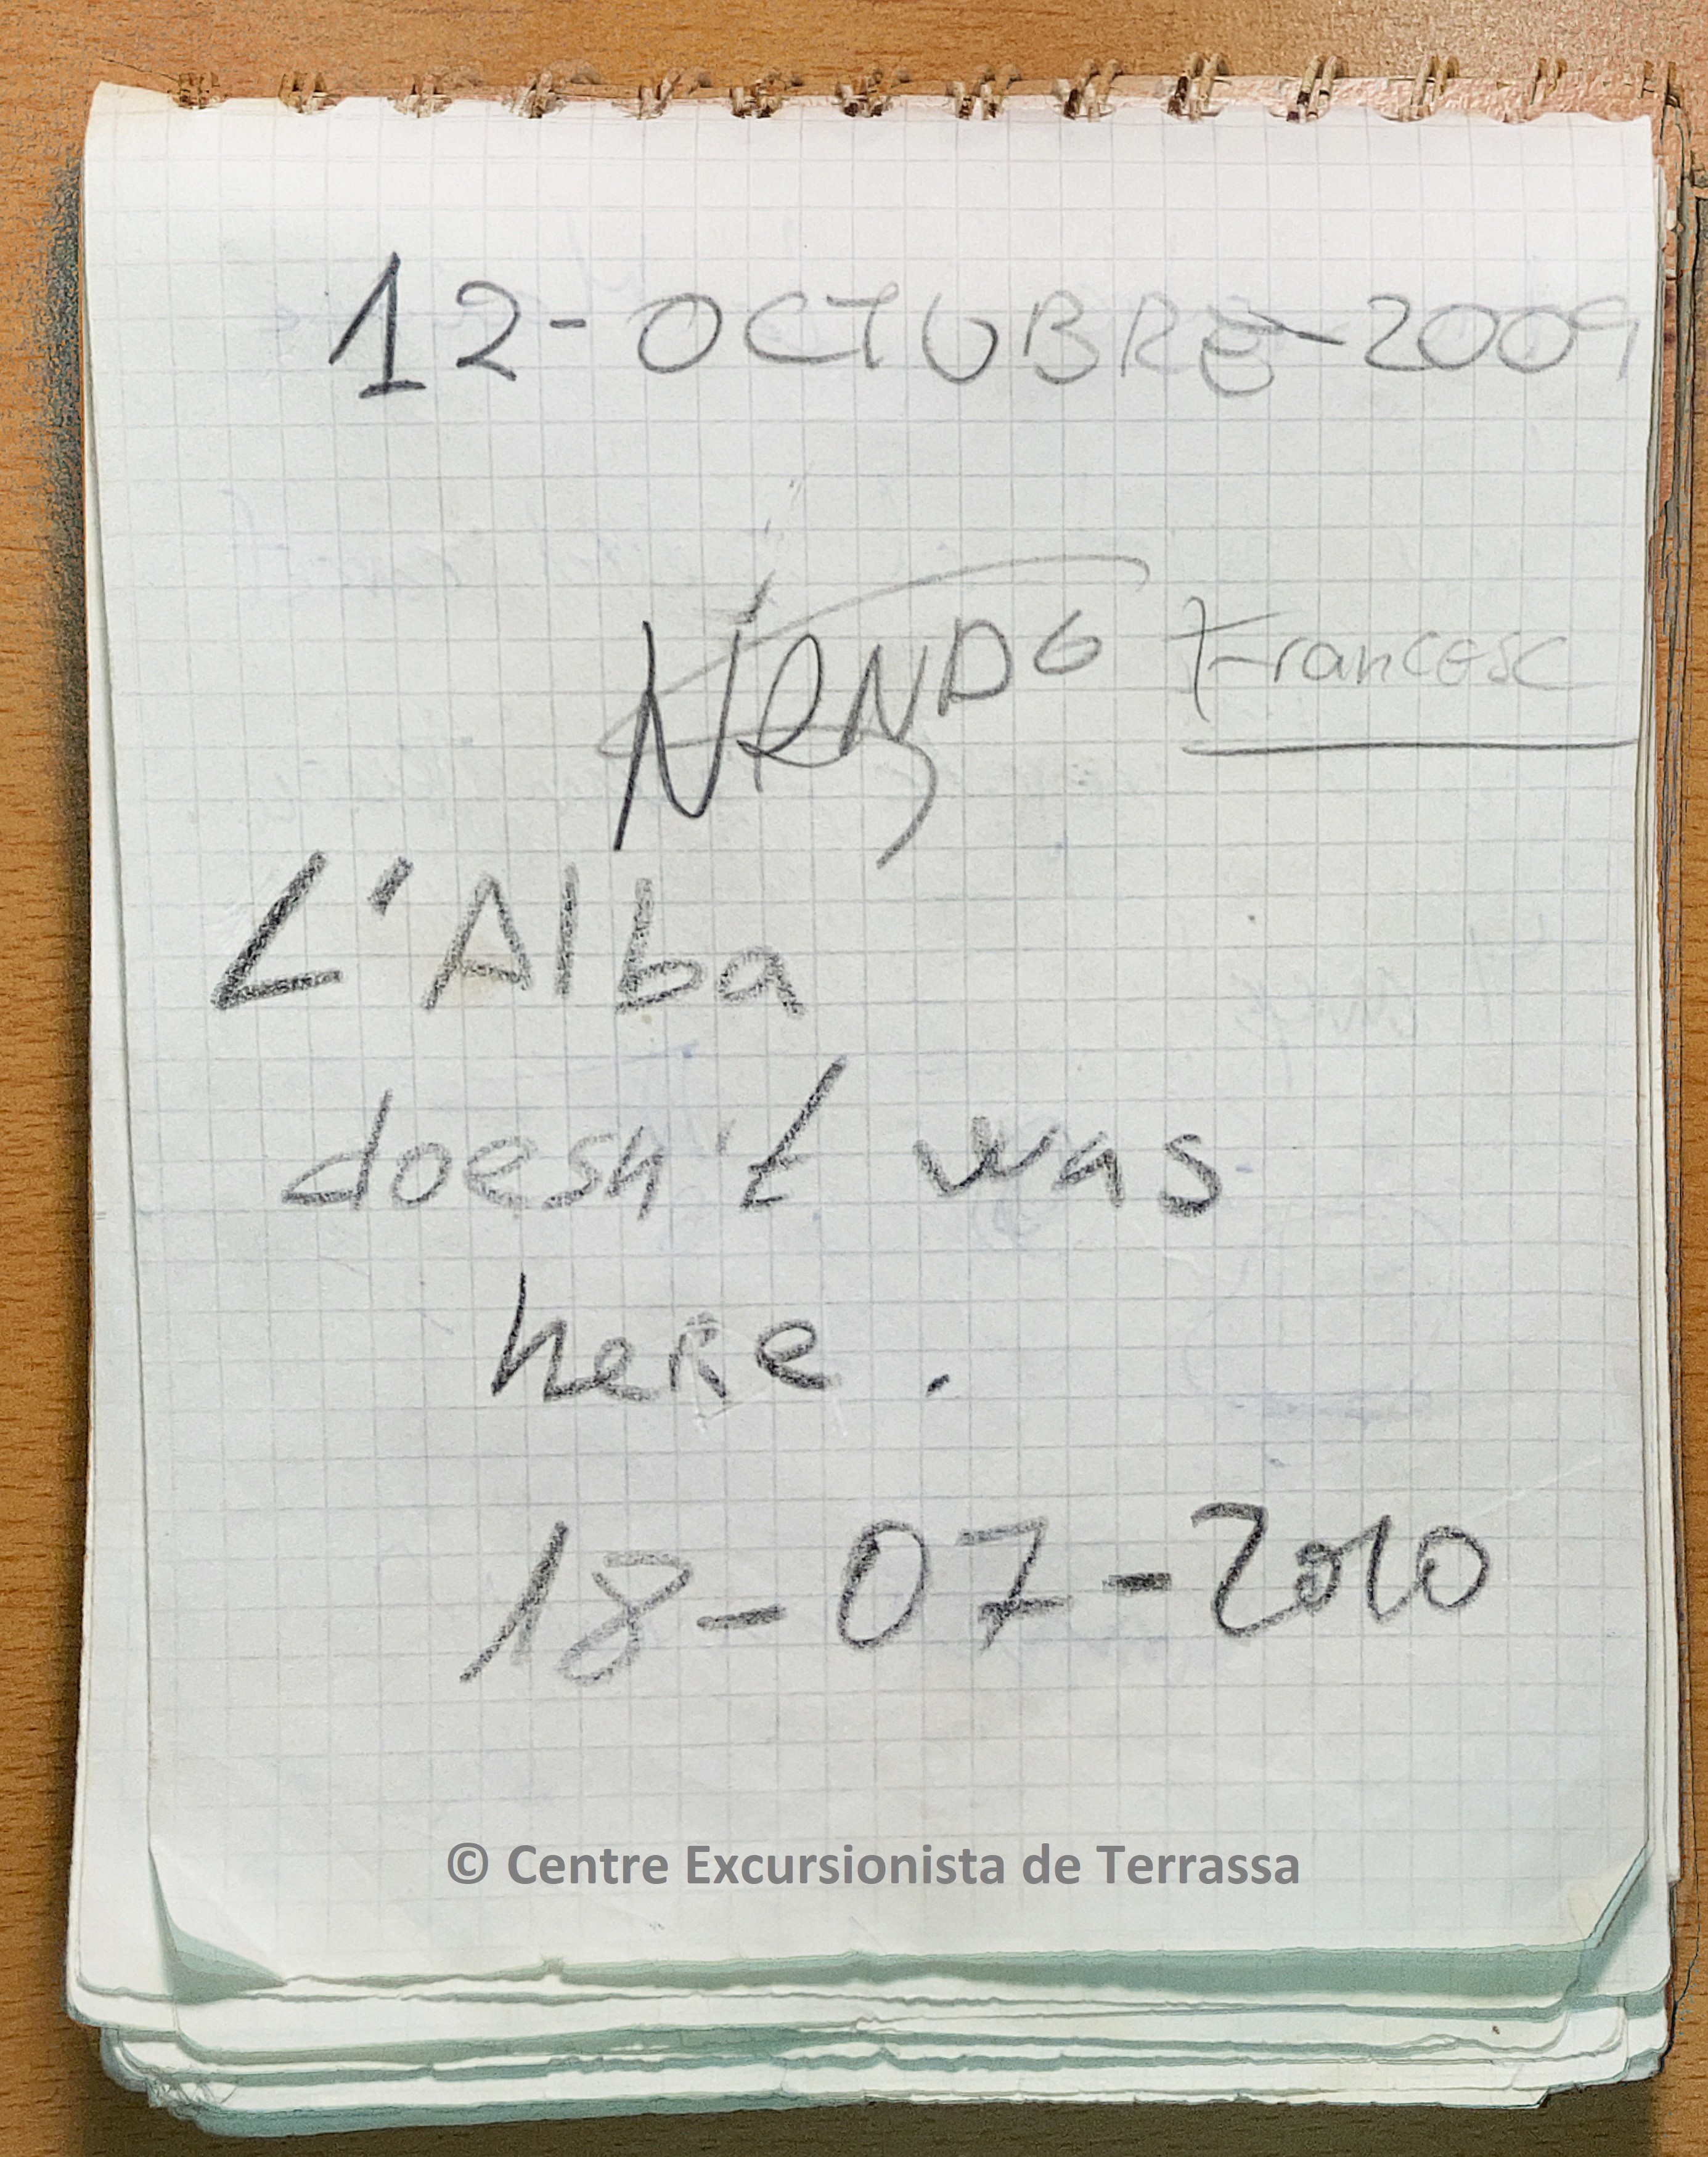 12-OCTUBRE-2009
Francesc
L'Alba
doesn't was
here.
18-07-2010
© Centre Excursionista de Terrassa